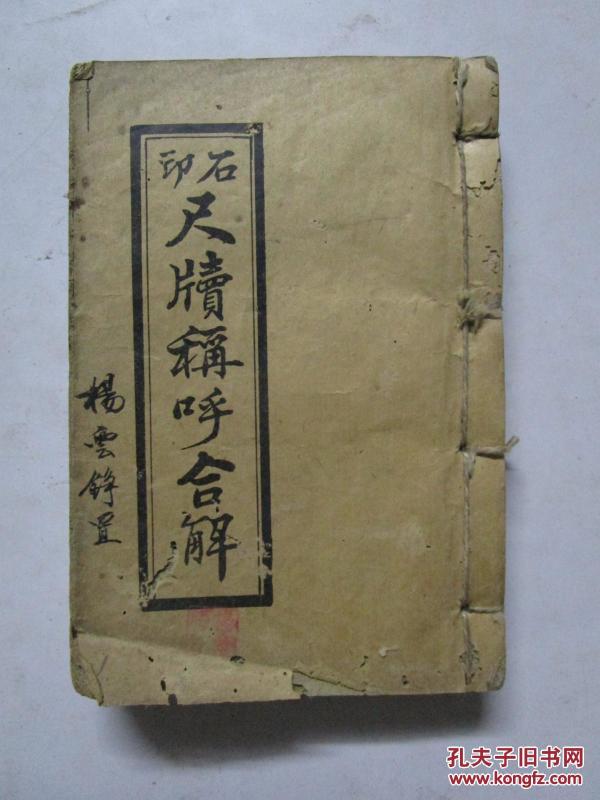 石印
尺牘稱呼合解
楊雲錚置
孔夫子旧书网
www.kongfz.com